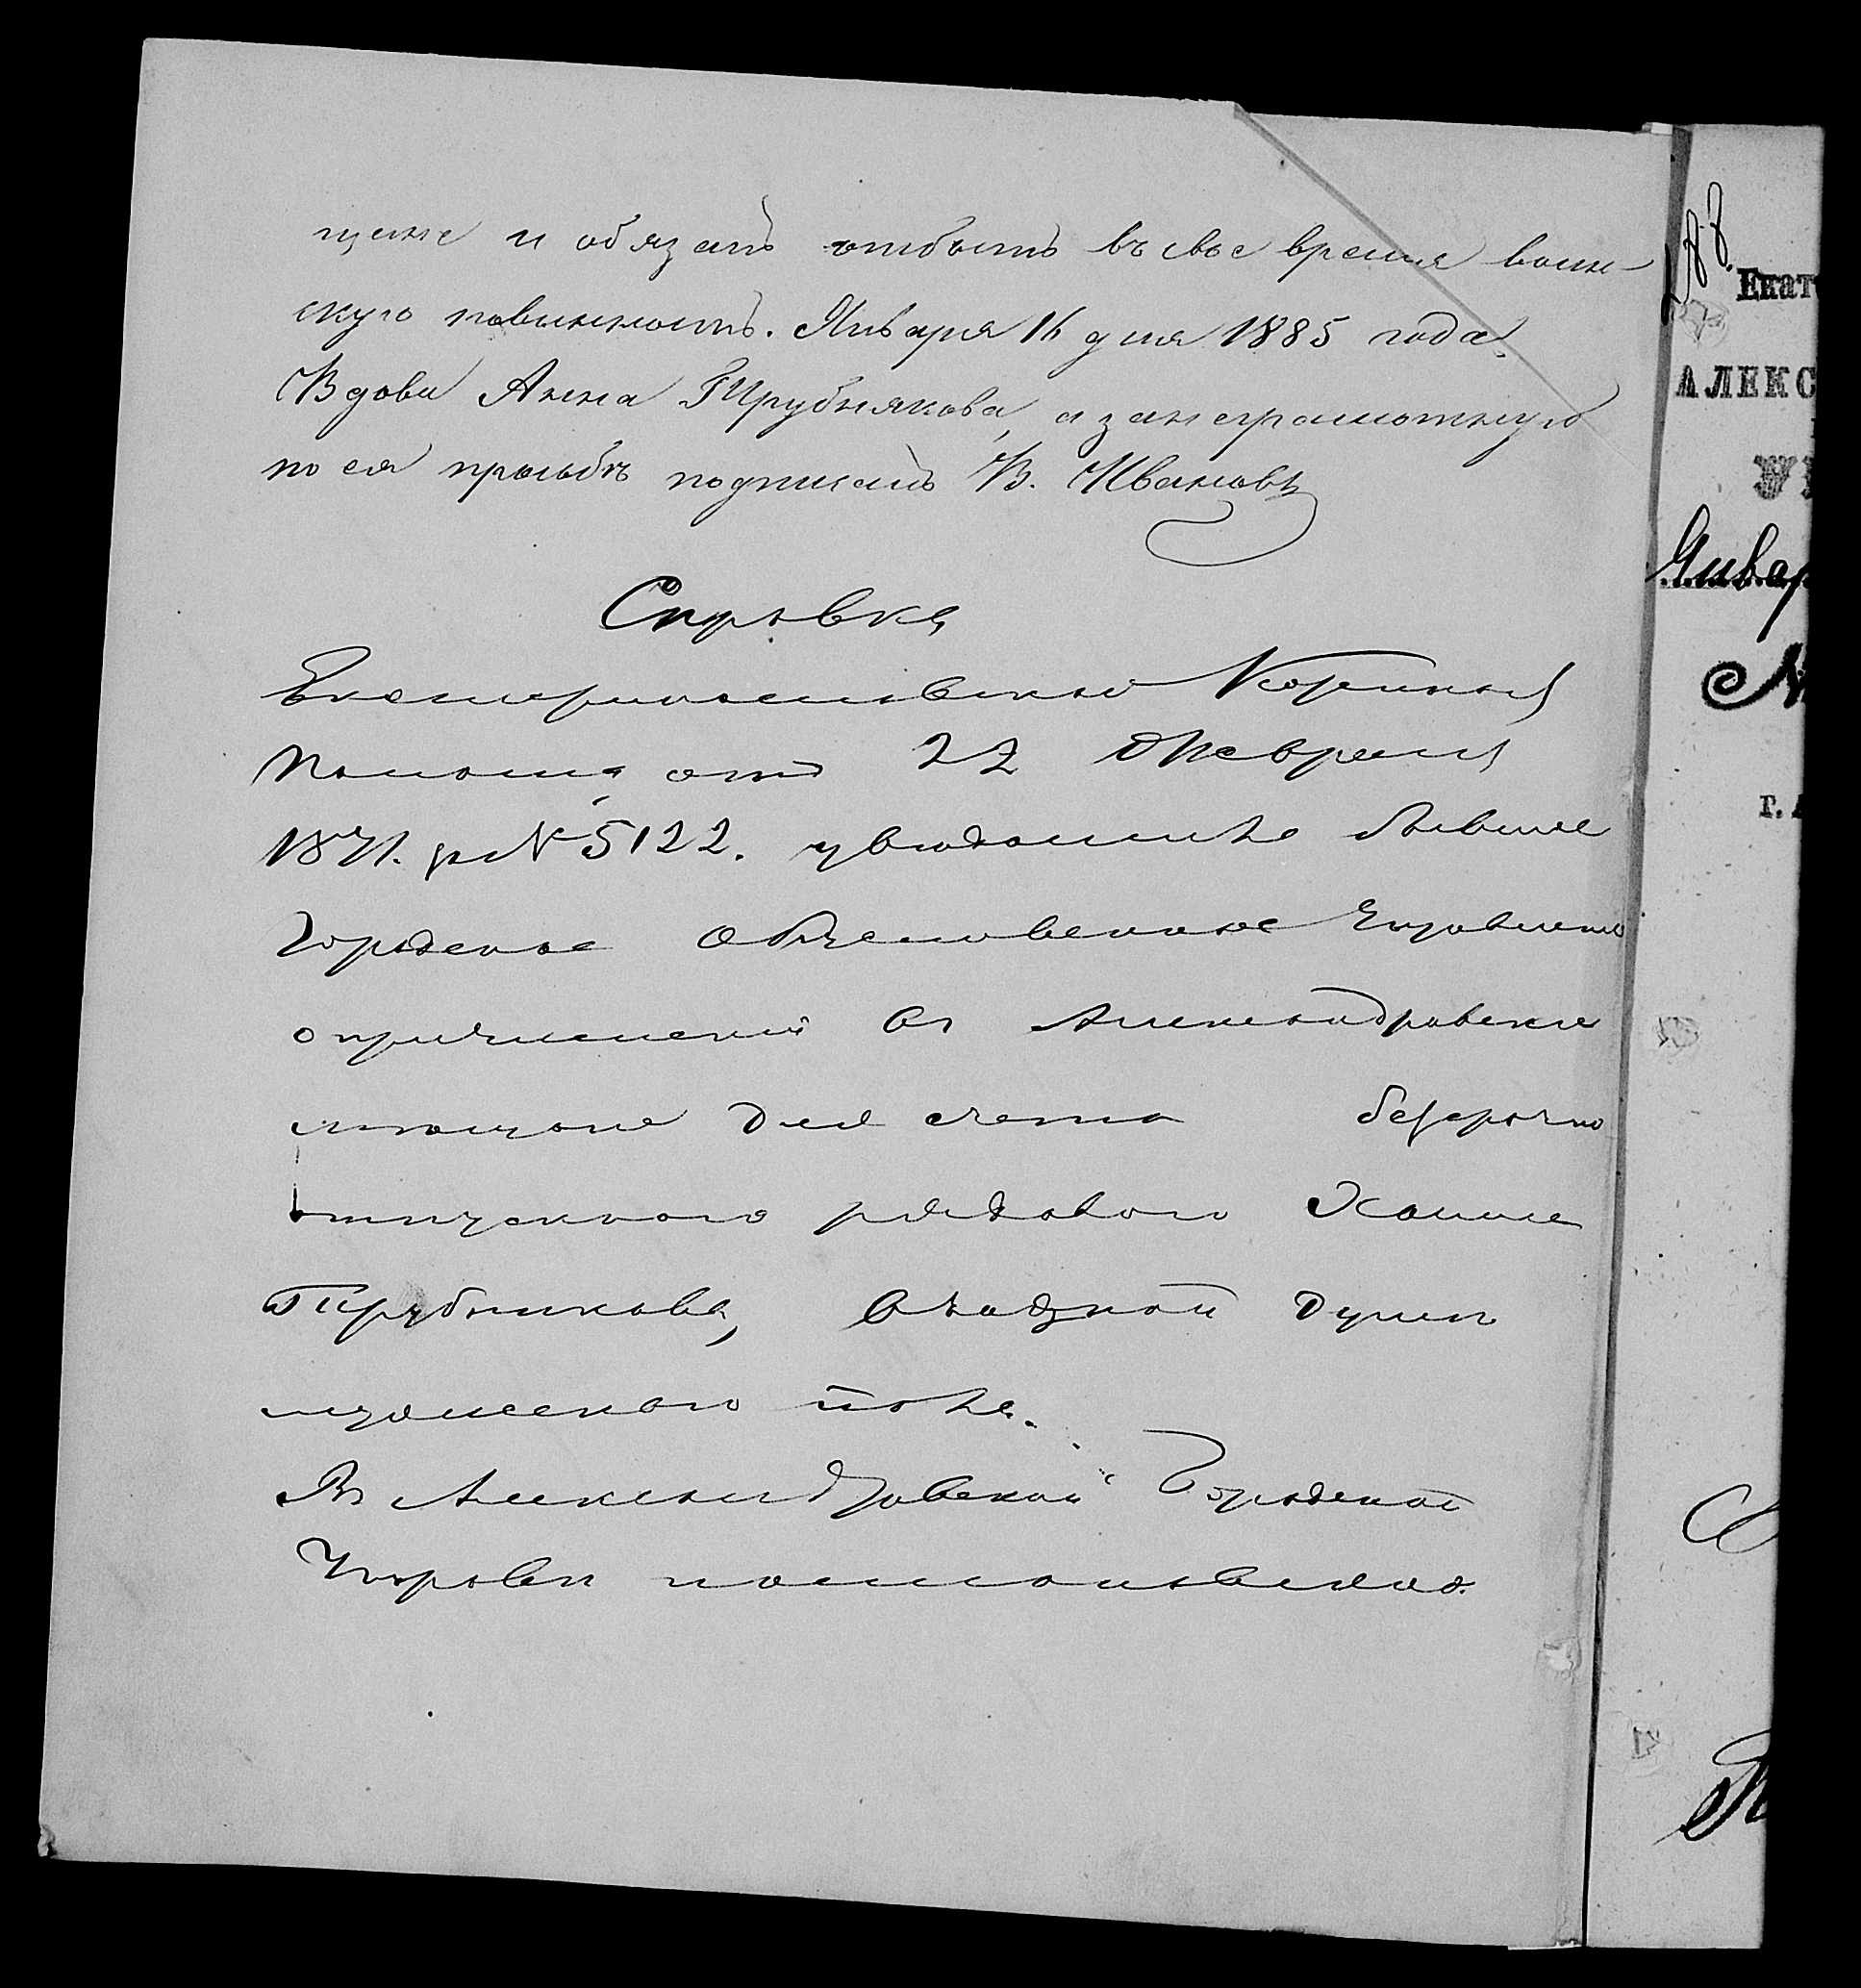 щане и обязанъ отбыть въ свое время воин-
скую повинность. Января 16 дня 1885 года.
Вдова Анна Трубникова, а за неграмотную
по ея просьбѣ подписалъ В. Ивановъ
Справка
Екатеринославская Казенная
Палата отъ 22 Февраля
1871. за № 5122. увѣдомила бывшее
Городское Общественное Управленіе
о причисленіи въ Александровскіе
мѣщане для счета безсрочно
отпускнаго рядоваго
Трубникова, въ одной душѣ
мужескаго пола.
Въ Александровской Городской
Управѣ
183.
Екат
АЛЕКС
Январ
№
г. А